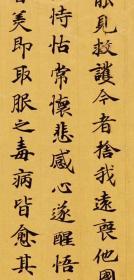 能見救護今者捨我遠喪他國
恃怙常懷悲感心遂醒悟
香美即取服之毒病皆愈其